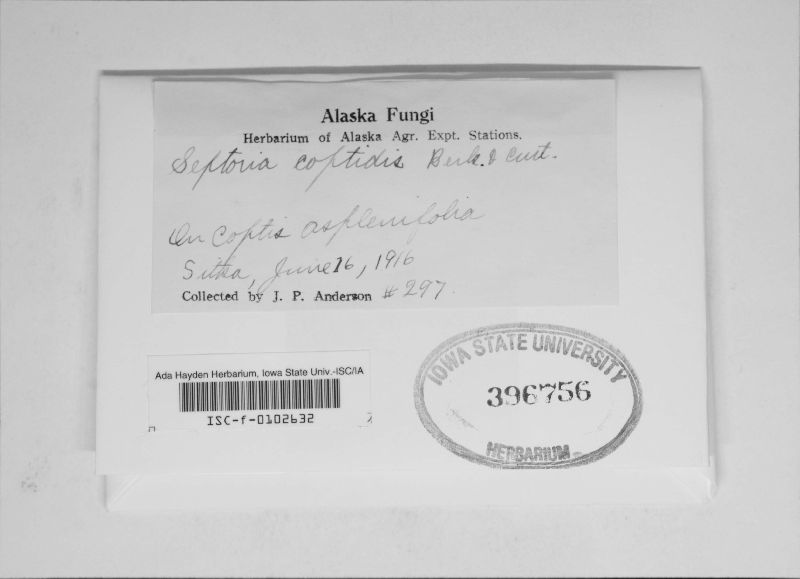 Alaska Fungi
Herbarium of Alaska Agr. Expt. Stations.
Septoria coptidis Berk. & Curt.
On Coptis asplenifolia
Sitka, June 16, 1916
Collected by J. P. Anderson # 297.
Ada Hayden Herbarium, Iowa State Univ.-ISC/IA
ISC-f-0102632
IOWA STATE UNIVERSITY
396756
HERBARIUM